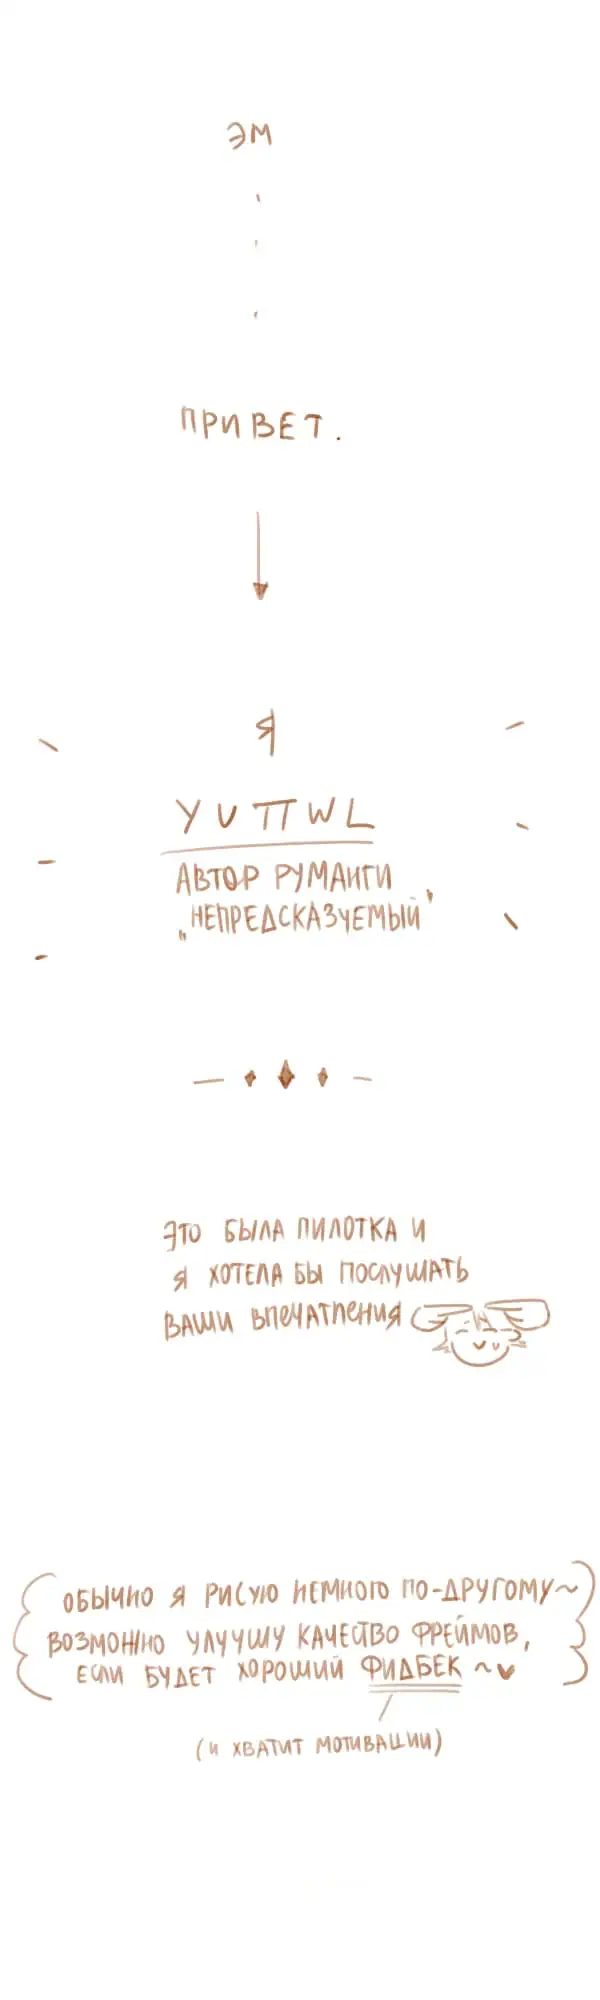 ЭМ
.
.
.
ПРИВЕТ.
Я
YUTTWL
АВТОР РУМАНГИ
„НЕПРЕДСКАЗУЕМЫЙ"
ЭТО БЫЛА ПИЛОТКА И
Я ХОТЕЛА БЫ ПОСЛУШАТЬ
ВАШИ ВПЕЧАТЛЕНИЯ
ОБЫЧНО Я РИСУЮ НЕМНОГО ПО-ДРУГОМУ~
ВОЗМОЖНО УЛУЧШУ КАЧЕСТВО ФРЕЙМОВ,
ЕСЛИ БУДЕТ ХОРОШИЙ ФИДБЕК ~♥
(И ХВАТИТ МОТИВАЦИИ)